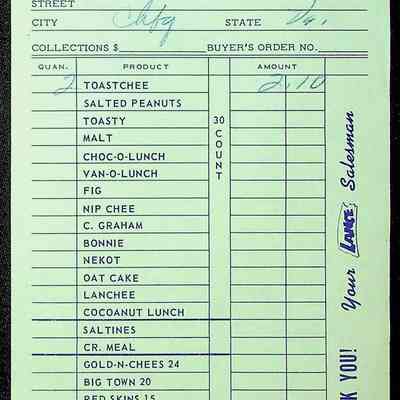 STREET
CITY Chfg STATE Va.
COLLECTIONS $ BUYER'S ORDER NO.
QUAN. PRODUCT AMOUNT
2 TOASTCHEE 2.10
SALTED PEANUTS
TOASTY
MALT
CHOC-O-LUNCH
VAN-O-LUNCH
FIG
NIP CHEE
C. GRAHAM
BONNIE
NEKOT
OAT CAKE
LANCHEE
COCOANUT LUNCH
SALTINES
CR. MEAL
GOLD-N-CHEES 24
BIG TOWN 20
RED SKINS 15
30 COUNT
K YOU! Your LANCE Salesman